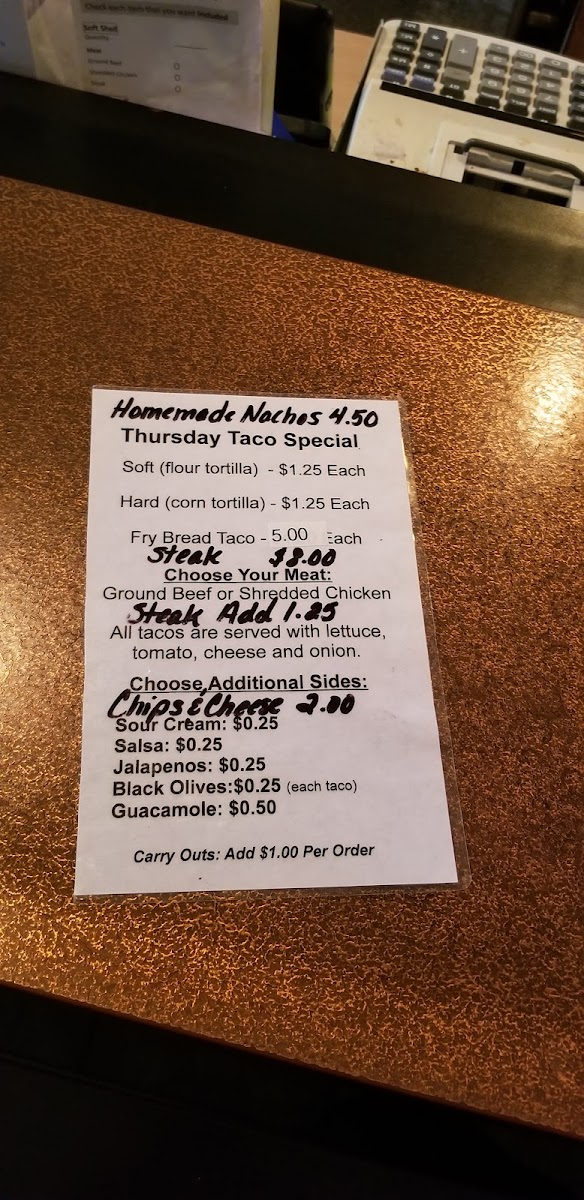 Check each item that you want included
Soft Shell
Quantity
Meat
Ground Beef
Shredded Chicken
Homemade Nachos 4.50
Thursday Taco Special
Soft (flour tortilla) - $1.25 Each
Hard (corn tortilla) - $1.25 Each
Fry Bread Taco - 5.00 Each
Steak $8.00
Choose Your Meat:
Ground Beef or Shredded Chicken
Steak Add 1.25
All tacos are served with lettuce,
tomato, cheese and onion.
Choose Additional Sides:
Chips & Cheese 2.00
Sour Cream: $0.25
Salsa: $0.25
Jalapenos: $0.25
Black Olives:$0.25 (each taco)
Guacamole: $0.50
Carry Outs: Add $1.00 Per Order